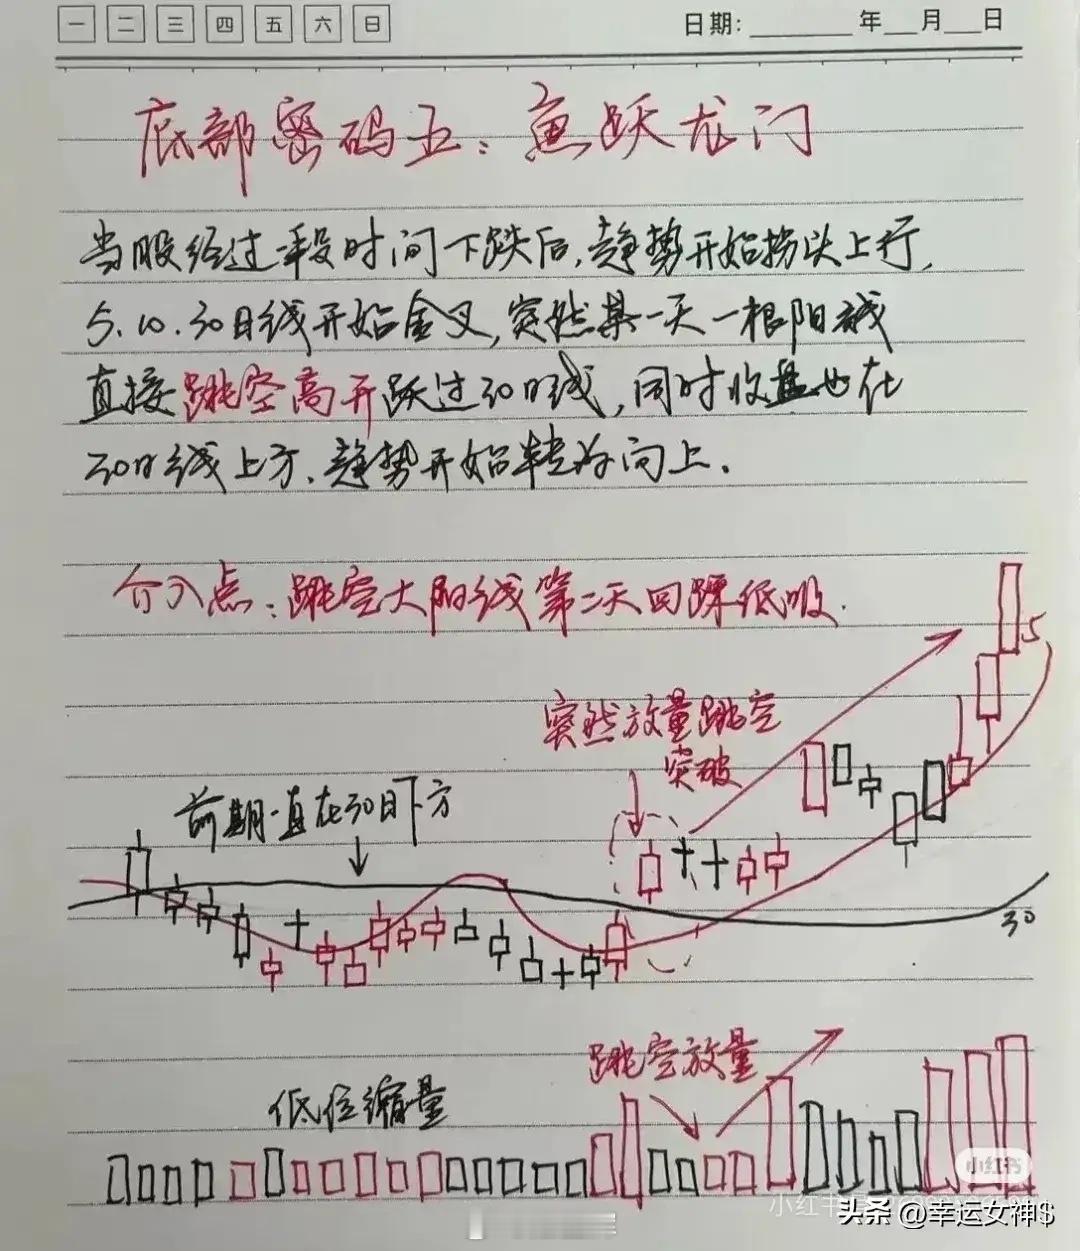 一 二 三 四 五 六 日 日期: 年 月 日
底部密码五: 鱼跃龙门
当股经过一段时间下跌后,趋势开始拐头上行,
5.10.30日线开始金叉,突然某一天一根阳线
直接跳空高开跃过30日线,同时收盘也在
30日线上方,趋势开始转为向上.
介入点:跳空大阳线第二天回踩低吸.
5
突然放量跳空
突破
前期一直在30日下方
30
跳空放量
低位缩量
小红书
头条 @幸运女神$